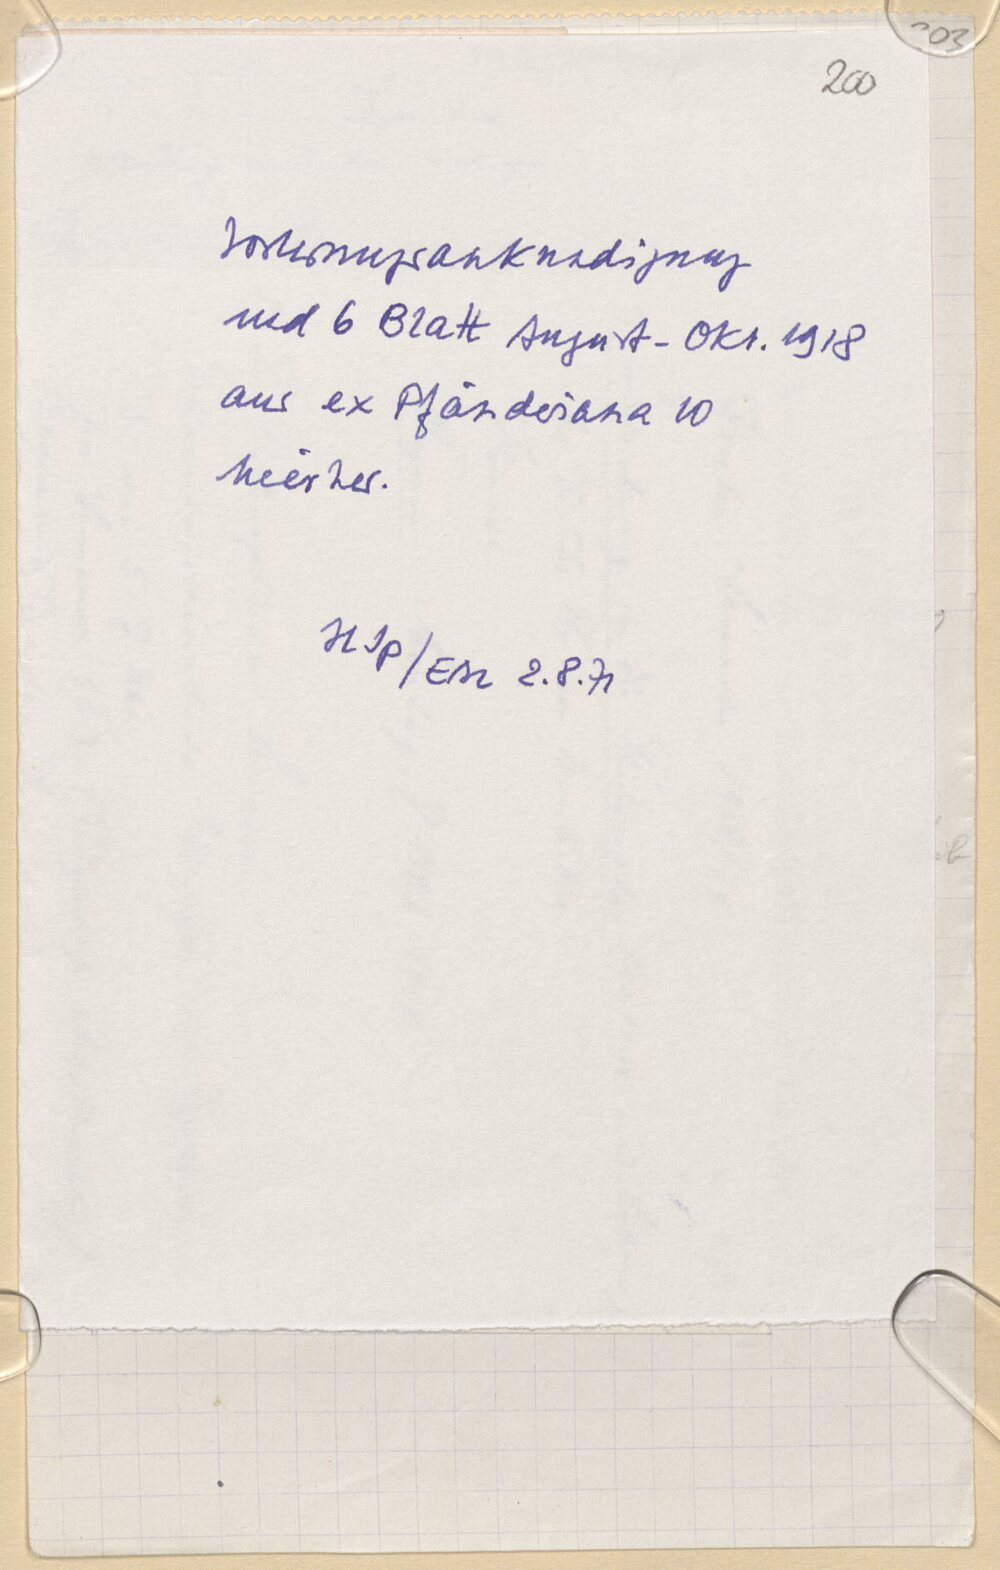 203
200
Vorlesungsankündigung
und 6 Blatt August - Okt. 1918
aus ex Pfänderiana 10
hierher.
HJP/EAr 2.8.71